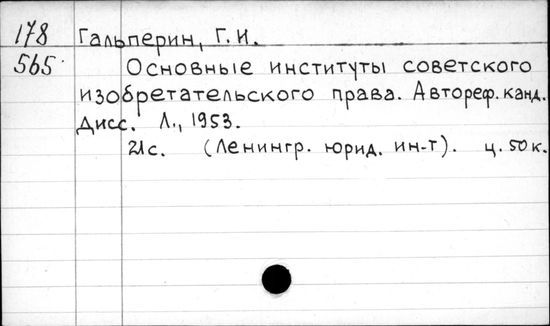 178 Гальперин, Г.И.
565 Основные институты советского
изобретательского права. Автореф. канд.
дисс. Л., 1953.
21с. (Ленингр. юрид. ин-т). ц. 50к.